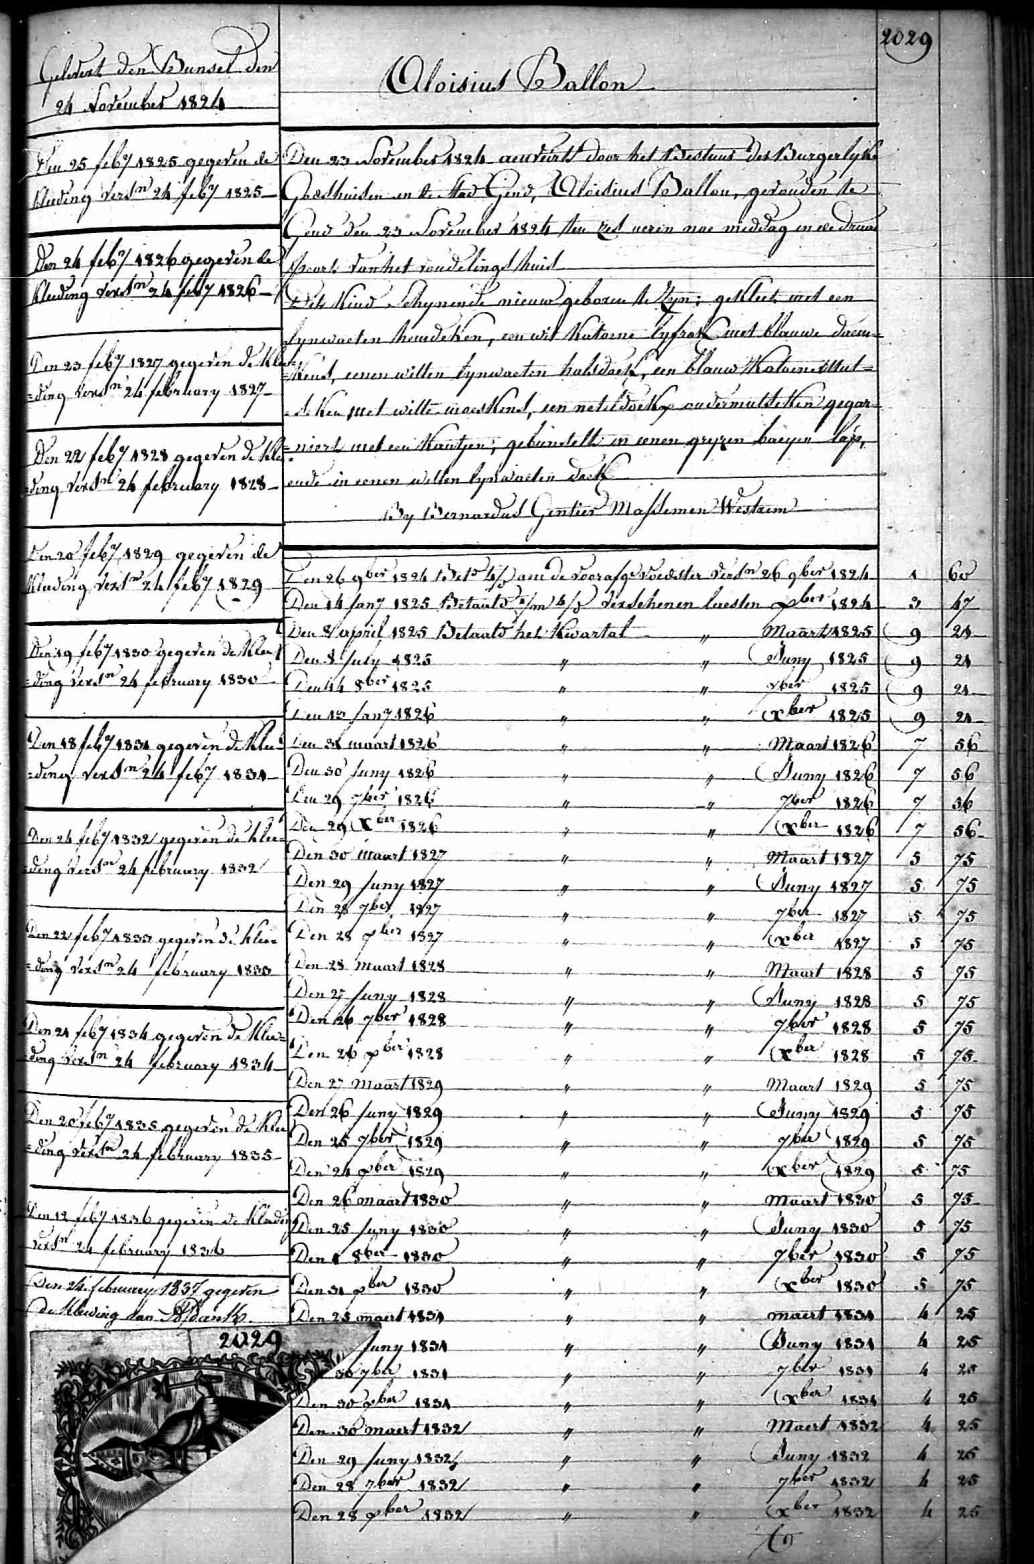 2029
Gelevert den Bunsel den
24 November 1824
Den 25 feb.y 1825 gegeven de
kleeding vers.tn 24 feb.y 1825
Den 24 feb.y 1826 gegeven de
kleeding vers.tn 24 feb.y 1826
Den 23 feb.y 1827 gegeven de klee
=ding vers.tn 24 february 1827
Den 22 feb.y 1828 gegeven de kle
=ding vers.tn 24 february 1828
Den 20 feb.y 1829 gegeven de
kleeding vers.tn 24 feb.y 1829
Den 19 feb.y 1830 gegeven de klee
=ding vers.tn 24 february 1830
Den 18 feb.y 1831 gegeven de klee
=ding vers.tn 24 feb.y 1831
Den 24 feb.y 1832 gegeven de klee=
=ding vers.tn 24 february 1832
Den 22 feb.y 1833 gegeven de klee=
=ding vers.tn 24 february 1833
Den 21 feb.y 1834 gegeven de klee=
=ding vers.tn 24 february 1834
Den 20 feb.y 1835 gegeven de klee
=ding vers.tn 24 february 1835
Den 12 feb.y 1836 gegeven de kleeding
vers.tn 24 february 1836
Den 24 february 1837 gegeven
de kleeding van
2029
Aloisius Ballon
Den 23 November 1824 aenveirt door het Bestuur der Burgerlyke
Godshuisen en de stad Gend, Aloisius Ballon, gevonden te
Gend den 23 November 1824 ten zes ueren nae middag in de draey
poorte van het vondelingshuis
Dit kind schynende nieuw geboren te zyn; gekleet met een
lynwaeten hemdeken, een wit katoene lyfrok met blauwe
=kens, eenen witten lynwaeten halsdoek, een blauw katoene Mut=
=seken met witte moeskens, een neteldoek ondermutsken gegar=
=niert met een kantjen; gebunselt in eenen gryzen baeyen lap,
ende in eenen witten lynwaeten doek
By Bernardus Gentier Massemen Westrem
Den 26 9ber 1824 aen de voorafge voedster vers.tn 26 9ber 1824 1 60
Den 14 jan.y 1825 Betaald verschenen leesten xber 1824 3 47
Den 8 april 1825 Betaald het kwartal „ Maart 1825 9 21
Den 8 july 1825 „ „ Juny 1825 9 21
Den 14 8ber 1825 „ „ 7ber 1825 9 21
Den 13 jan.y 1826 „ „ xber 1825 9 21
Den 31 maart 1826 „ „ Maart 1826 7 56
Den 30 juny 1826 „ „ Juny 1826 7 56
Den 29 7ber 1826 „ „ 7ber 1826 7 56
Den 29 xber 1826 „ „ xber 1826 7 56
Den 30 maart 1827 „ „ Maart 1827 5 75
Den 29 juny 1827 „ „ Juny 1827 5 75
Den 28 7ber 1827 „ „ 7ber 1827 5 75
Den 28 xber 1827 „ „ xber 1827 5 75
Den 28 maart 1828 „ „ Maart 1828 5 75
Den 27 juny 1828 „ „ Juny 1828 5 75
Den 26 7ber 1828 „ „ 7ber 1828 5 75
Den 26 xber 1828 „ „ xber 1828 5 75
Den 27 maart 1829 „ „ Maart 1829 5 75
Den 26 juny 1829 „ „ Juny 1829 5 75
Den 25 7ber 1829 „ „ 7ber 1829 5 75
Den 24 xber 1829 „ „ xber 1829 5 75
Den 26 maart 1830 „ „ maart 1830 5 75
Den 25 juny 1830 „ „ Juny 1830 5 75
Den 1 8ber 1830 „ „ 7ber 1830 5 75
Den 31 xber 1830 „ „ xber 1830 5 75
Den 25 maert 1831 „ „ maert 1831 4 25
juny 1831 „ „ Juny 1831 4 25
30 7ber 1831 „ „ 7ber 1831 4 25
Den 30 xber 1831 „ „ xber 1831 4 25
Den 30 maert 1832 „ „ Maert 1832 4 25
Den 29 juny 1832 „ „ Juny 1832 4 25
Den 28 7ber 1832 „ „ 7ber 1832 4 25
Den 28 xber 1832 „ „ xber 1832 4 25